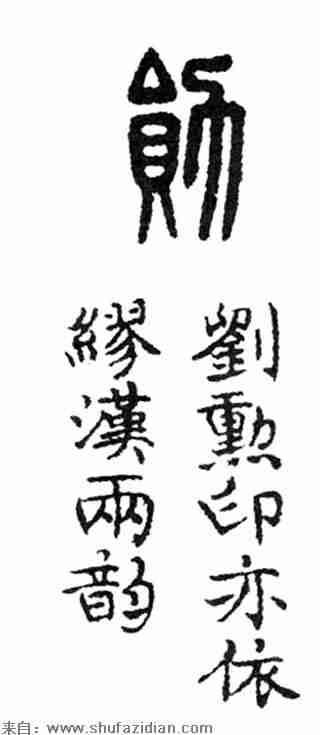 勛
劉勲印亦依
繆漢兩韵
来自：www.shufazidian.com